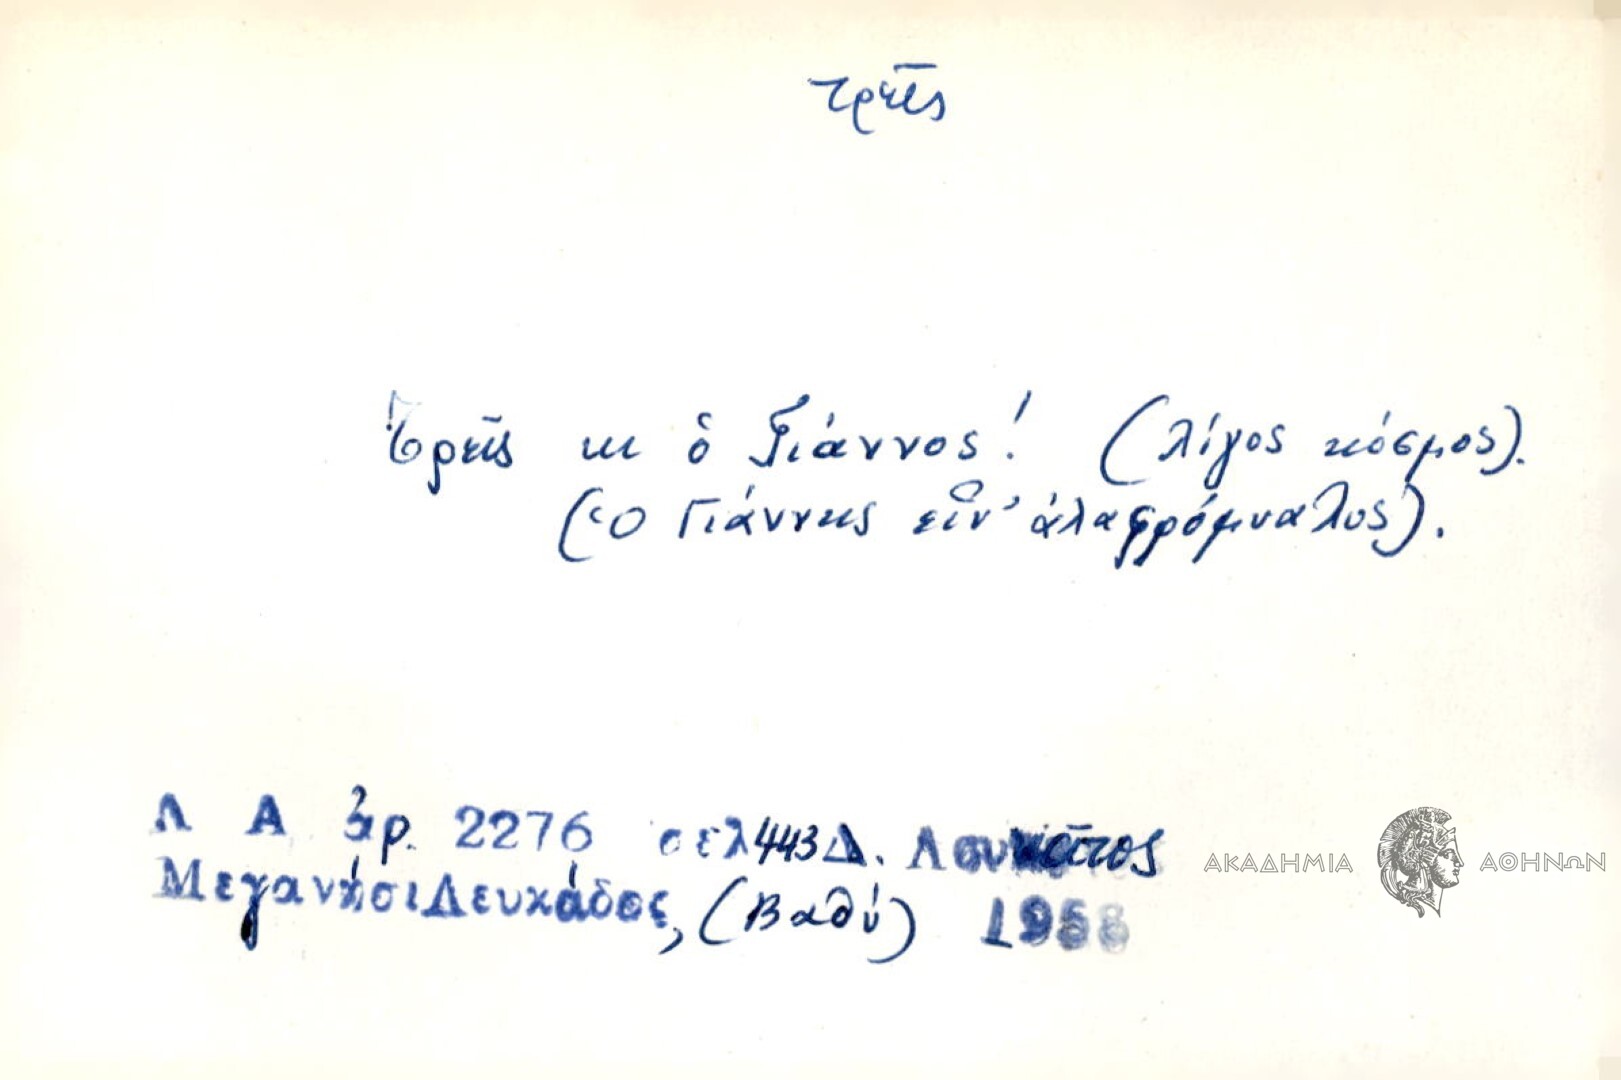 τρεῖς
Τρεῖς κι ὁ Γιάννος! (λίγος κόσμος).
(Ὁ Γιάννης εἶν' ἀλαφρόμυαλος).
Λ Α ἀρ. 2276 σελ 443 Δ. Λουκᾶτος
Μεγανήσι Λευκάδος, (Βαθύ) 1958
ΑΚΑΔΗΜΙΑ ΑΘΗΝΩΝ